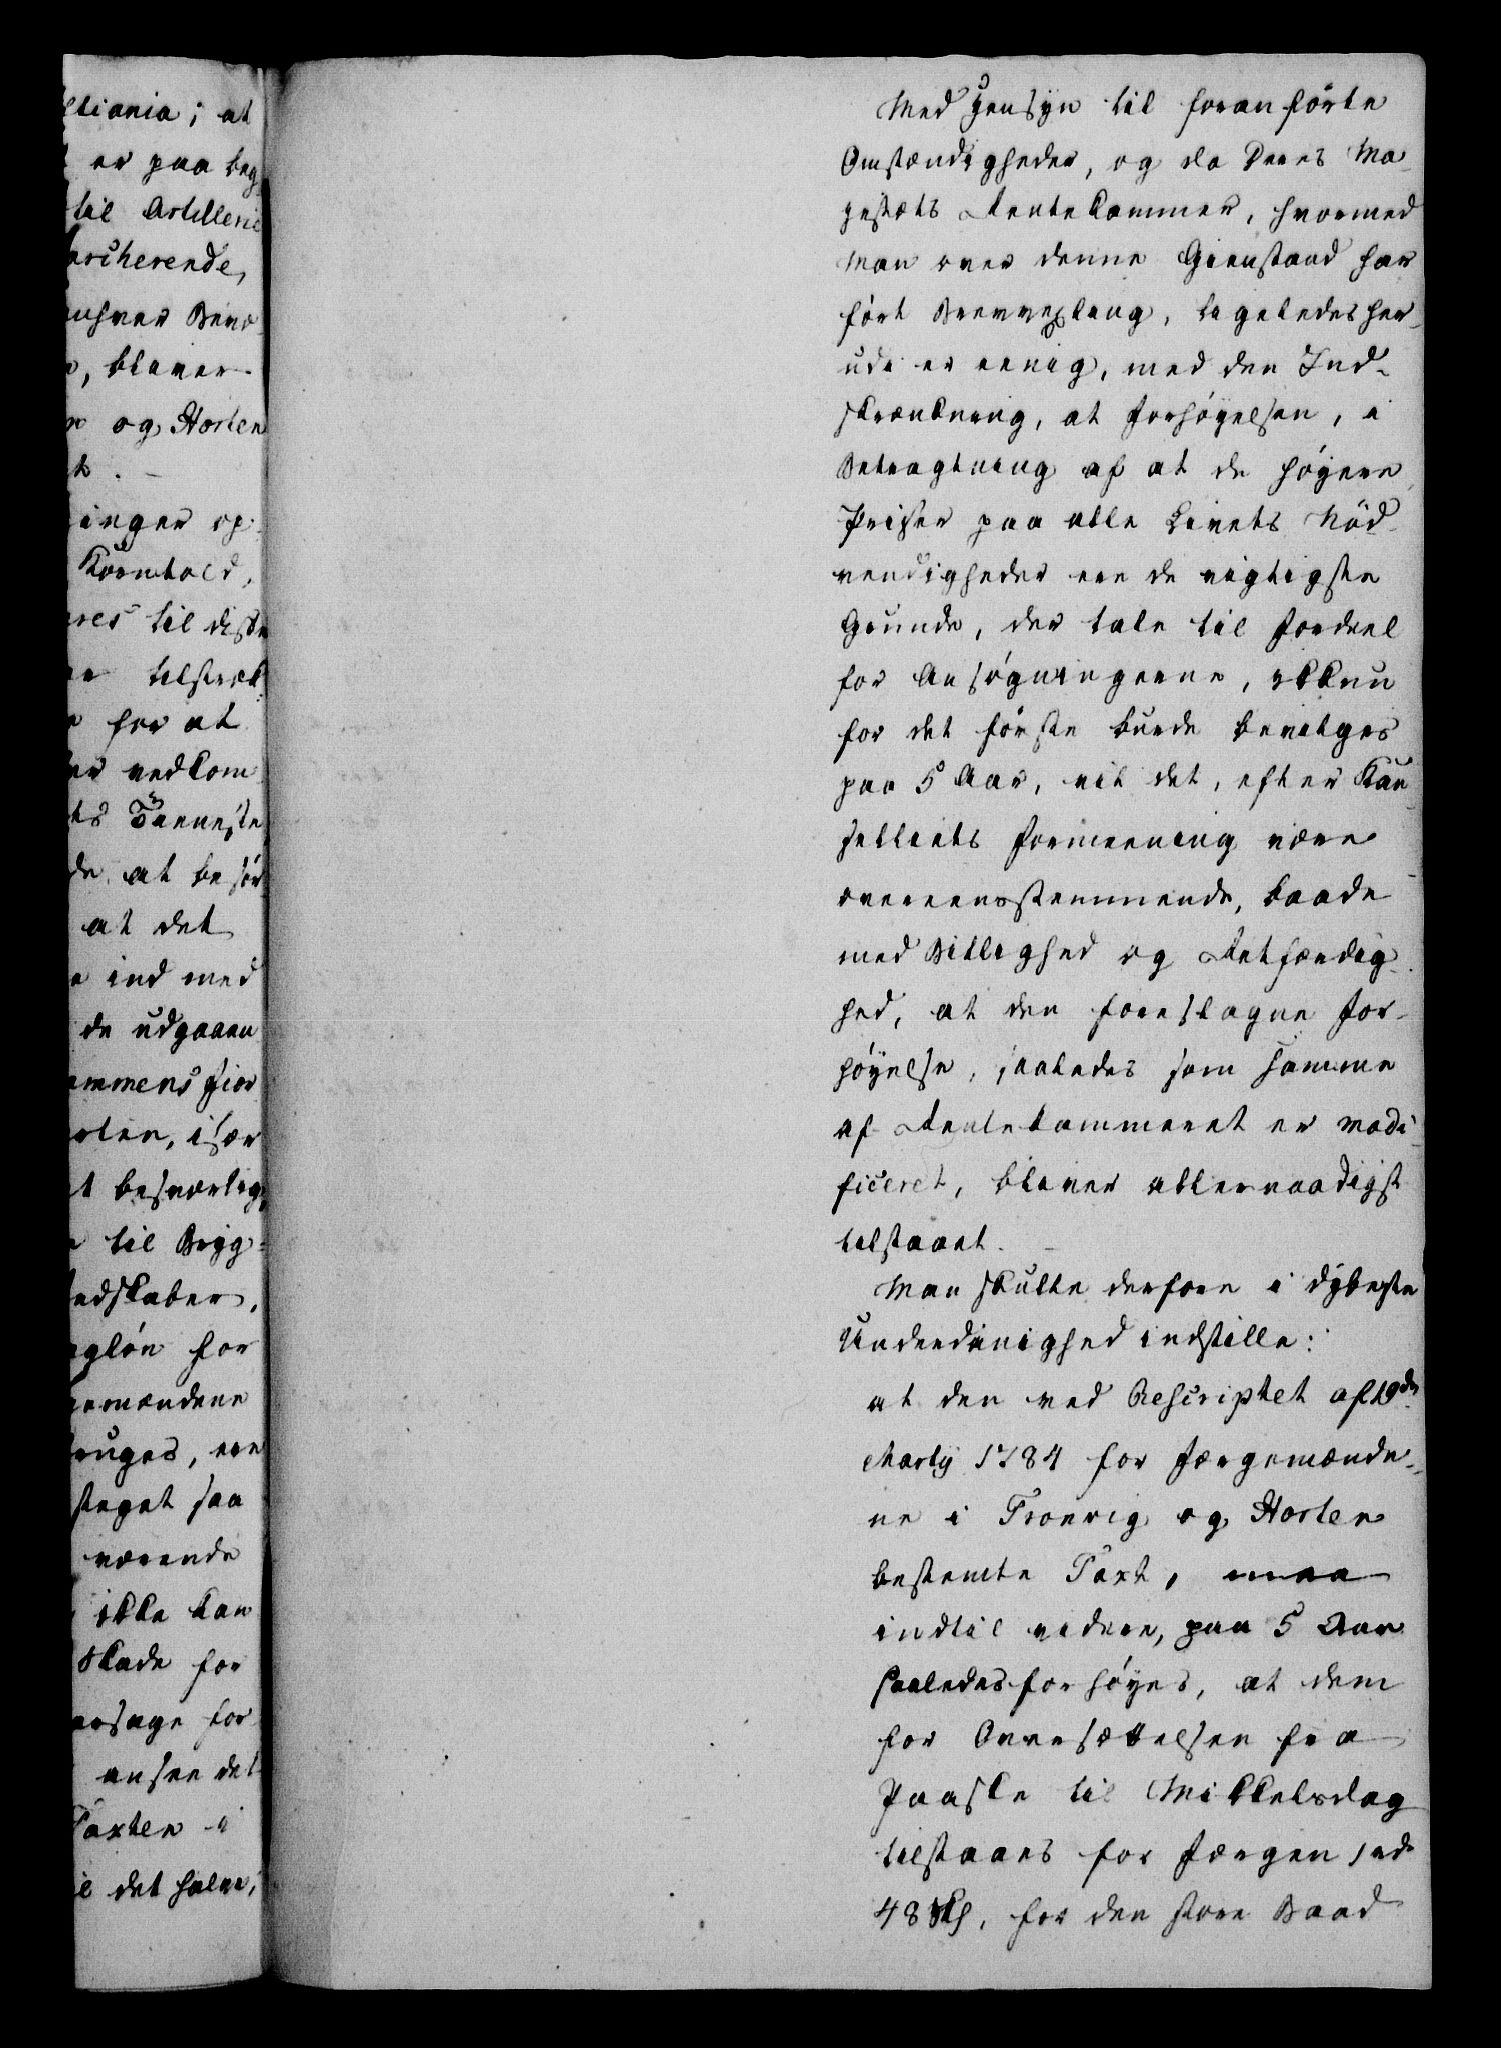 ltiania; at
er paa beg
til Artilleri
archerende,
enhver Bevo
, bliver
og Horten
t. –
inger op-
Kornhold,
ores til disse
tilstræk-
for at
er vedkom
ts Tieneste
de at besør
at det
ind med
de udgaaen
ammens Fior
rten, især
t besværlig,
til Bryg-
edskaber,
agløn for
gemændene
ruges, ere
steget saa
værende
ikke kan
Skade for
arsage for
ansee det
Taxten i
il det halve,
Med Hensyn til foranførte
Omstændigheder, og da Deres Ma-
jestæts Rentekammer, hvormed
Man over denne Gienstand har
ført Brevvexling, ligeledes her-
udi er eenig, med den Ind-
skrænkning, at Forhøyelsen, i
Betragtning af at de høyere
Priser paa alle Livets Nød-
vendigheder ere de vigtigste
Grunde, der tale til Fordeel
for Ansøgningerne, ikkun
for det første burde bevilges
paa 5 Aar, vil det, efter Kan-
celliets Formeening være
overeensstemmende, baade
med Billighed og Retfærdig-
hed, at den foreslagne For-
høyelse, saaledes som samme
af Rentekammeret er modi-
ficeret, bliver allernaadigst
tilstaaet. –
Man skulle derfore i dybeste
Underdanighed indstille:
at den ved Rescriptet af 19de
Martÿ 1784 for Færgemænde-
ne i Tronvig og Horten
bestemte Taxt, maa
indtil videre, paa 5 Aar
saaledes forhøyes, at dem
for Oversættelsen fra
Paaske til Mikkelsdag
tilstaaes for Færgen 1 rd
48 sk, for den store Baad